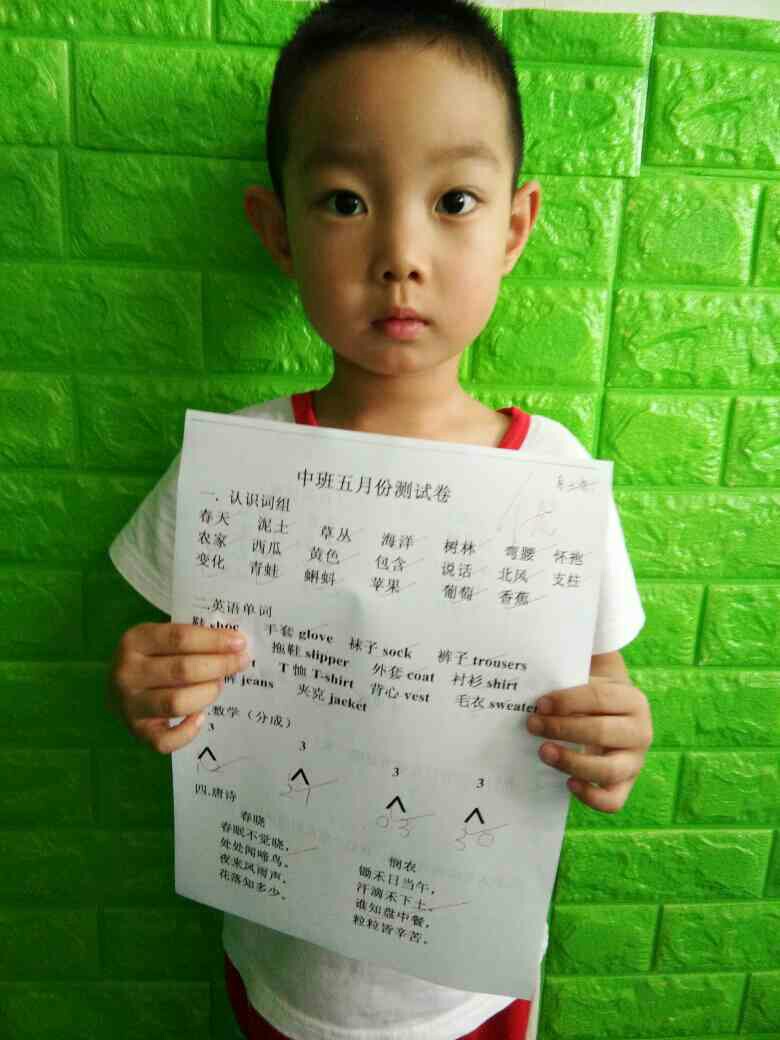 中班五月份测试卷
优
一．认识词组
春天 泥土 草丛 海洋 树林 弯腰 怀抱
农家 西瓜 黄色 包含 说话 北风 支柱
变化 青蛙 蝌蚪 苹果 葡萄 香蕉
二.英语单词
鞋 shoe 手套 glove 袜子 sock 裤子 trousers
拖鞋 slipper 外套 coat 衬衫 shirt
T 恤 T-shirt 背心 vest 毛衣 sweater
裤 jeans 夹克 jacket
.数学（分成）
3 3 3 3
1 2 2 1 0 3 3 0
四.唐诗
春晓
春眠不觉晓，
处处闻啼鸟，
夜来风雨声，
花落知多少。
悯农
锄禾日当午，
汗滴禾下土。
谁知盘中餐，
粒粒皆辛苦。